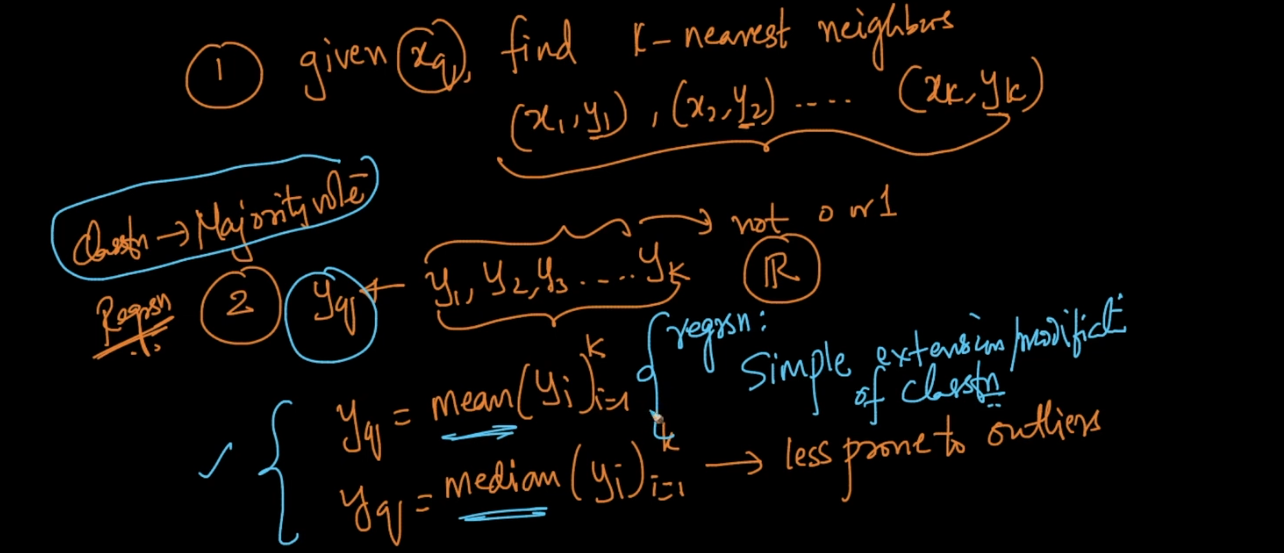 1 given xq, find K-nearest neighbors
(x1,y1), (x2,y2) ---- (xk,yk)
Classfn → Majority vote
not 0 or 1
Regrsn 2 yq ← y1, y2, y3 ..... yk ℝ
regrsn:
Simple extension/modificatn
of classfn
yq = mean(yi)i=1 k
yq = median(yi)i=1 k → less prone to outliers